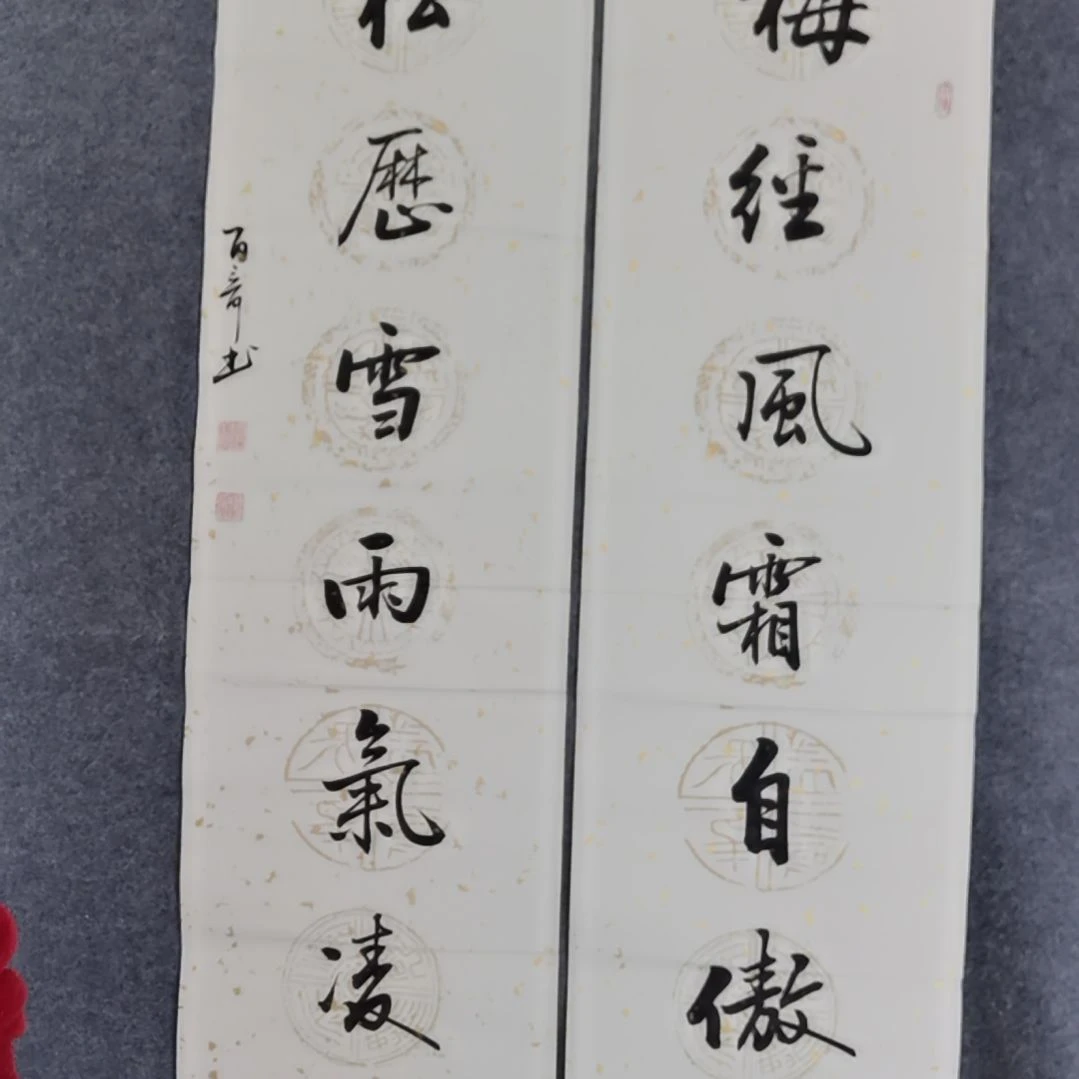 梅經風霜自傲
松歷雪雨氣凌
百奇书